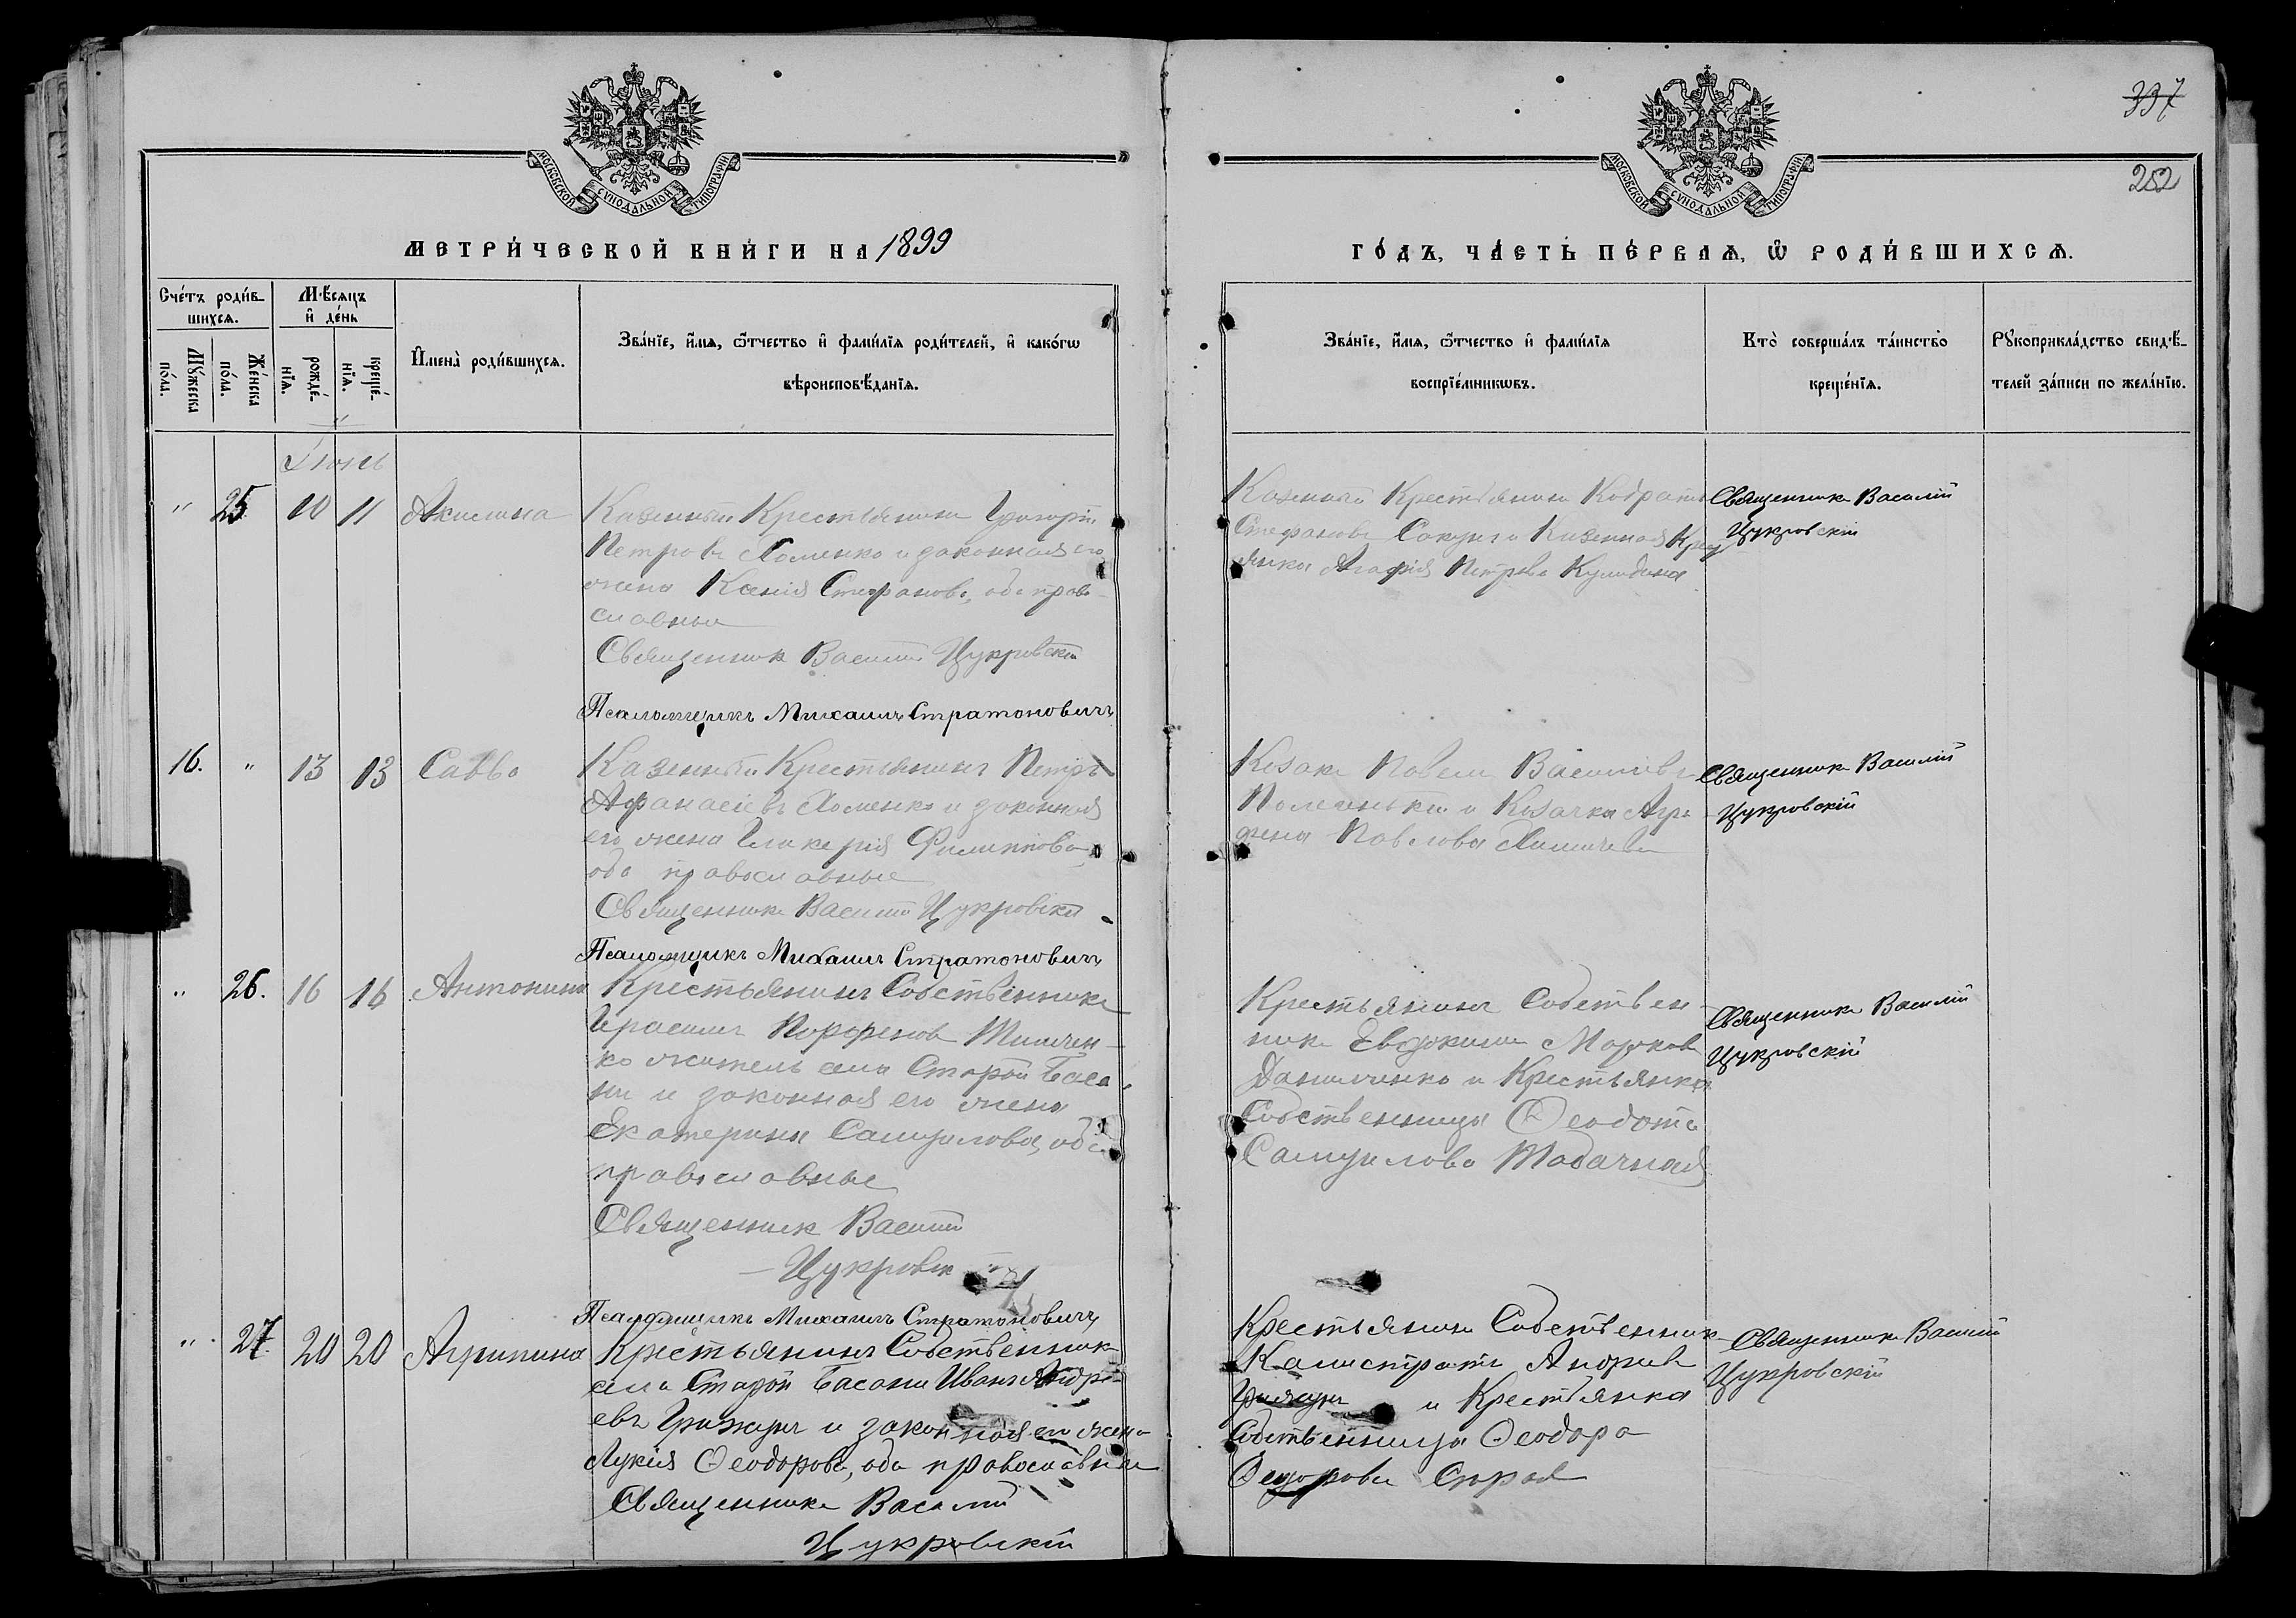 337
252
МОСКОВСКОЙ СѴНОДАЛЬНОЙ ТИПОГРАФІИ
МОСКОВСКОЙ СѴНОДАЛЬНОЙ ТИПОГРАФІИ
МЕТРИ́ЧЕСКОЙ КНИ́ГИ НА 1899
ГО́ДЪ, ЧА́СТЬ ПЕ́РВАѦ, Ѡ҆ РОДИ́ВШИХСѦ.
Сче́тъ роди́в-
шихсѧ.
Мѹ́жеска по́ла.
Же́нска по́ла.
Мѣ́сѧцъ
и҆ де́нь
рожде́-
нїѧ.
креще́-
нїѧ.
И҆мена̀ роди́вшихсѧ.
Зва́нїе, и҆́мѧ, ѻ҆́тчество и҆ фами́лїѧ роди́телей, и҆ како́гѡ
вѣроисповѣ́данїѧ.
Зва́нїе, и҆́мѧ, ѻ҆́тчество и҆ фами́лїѧ
воспрїе́мникѡвъ.
Кто̀ соверша́лъ та́инство
креще́нїѧ.
Рꙋкоприкла́дство свидѣ́-
телей за́писи по жела́нїю.
Іюнь
" 25. 10 11 Акилина
Казенный Крестьянинъ Григорій
Петровъ Хоменко и законная его
жена Ксенія Стефанова, оба право-
славные
Священникъ Василій Цукровскій
Псаломщикъ Михаилъ Стратоновичъ
Казенный Крестьянинъ Кодратъ
Стефановъ и Казенная Крес
янка Агафія Петрова
Священникъ Василій
Цукровскій
16. " 13 13 Савва
Казенный Крестьянинъ Петръ
Афанасіевъ Хоменко и законная
его жена Гликерія Филиппова
оба православные
Священникъ Василій Цукровскій
Псаломщикъ Михаилъ Стратоновичъ
Козакъ Павелъ Васильевъ
и Козачка Агра
фена Павлова
Священникъ Василій
Цукровскій
" 26. 16 16 Антонина
Крестьянинъ Собственникъ
Герасимъ Парфеновъ Тимчен-
ко житель села Старой Баса-
ни и законная его жена
Екатерина Самуилова, оба
православные
Священникъ Василій
Цукровскій
Псаломщикъ Михаилъ Стратоновичъ
Крестьянинъ Собствен
никъ Евдокимъ Марковъ
Данильченко и Крестьянка
Собственница Ѳеодота
Самуилова Табачная
Священникъ Василій
Цукровскій
" 27. 20 20 Агрипина
Крестьянинъ Собственникъ
села Старой Басани Иванъ Андре-
евъ Грижунъ и законная его жена
Лукія Ѳеодорова, оба православные
Священникъ Василій
Цукровскій
Крестьянинъ Собственникъ
Калистратъ Андреевъ
и Крестьянка
Собственница Ѳеодора
Ѳедорова
Священникъ Василій
Цукровскій